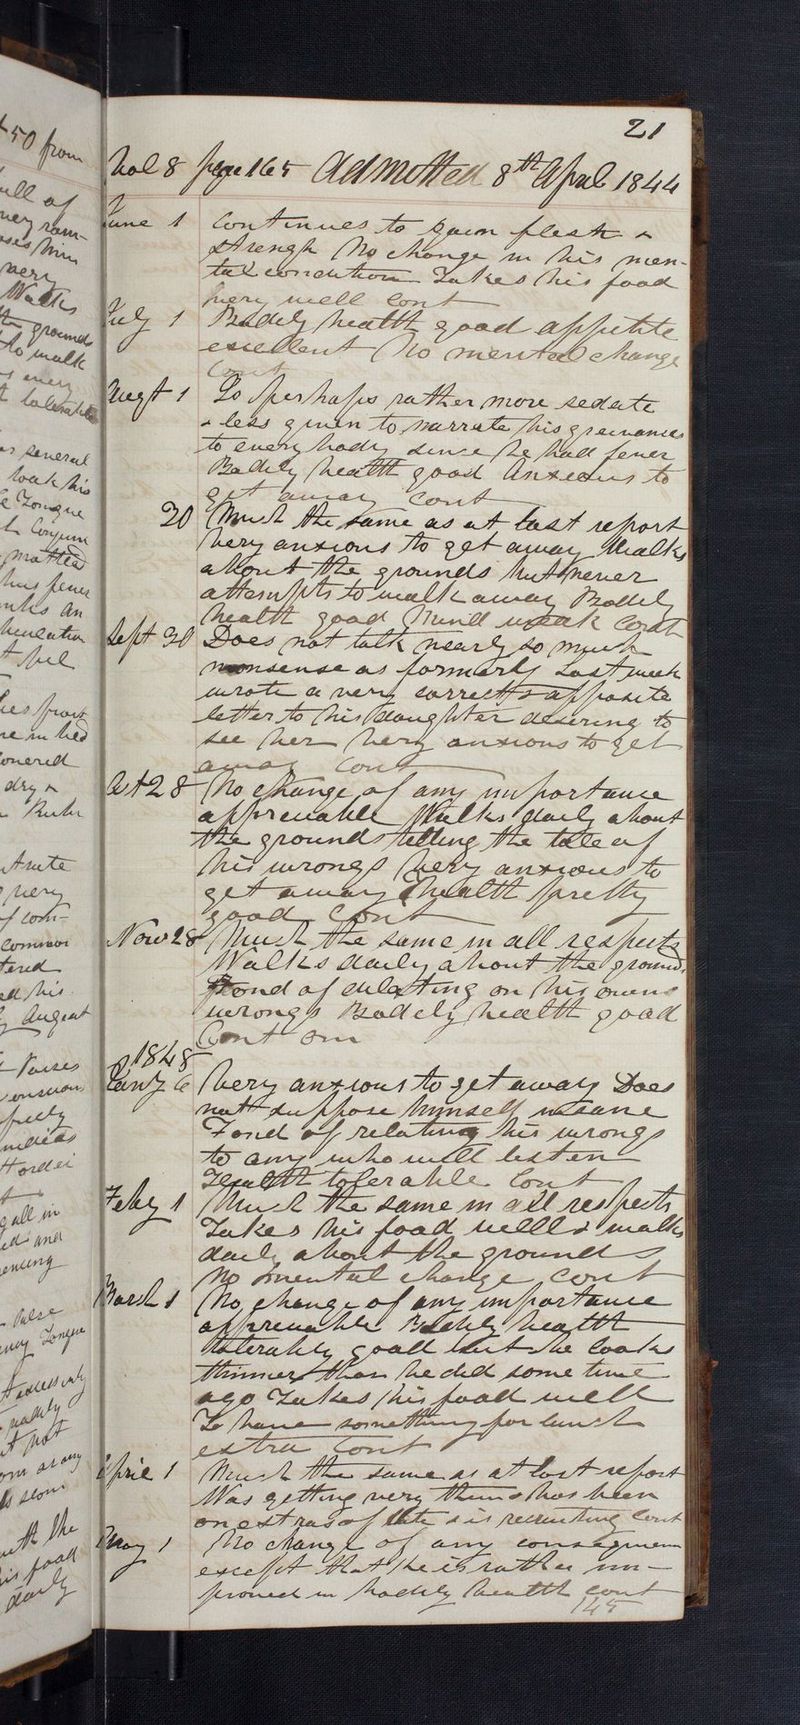 21
Vol 8 page 165 Admitted 8th April 1844
June 1 Continues to gain flesh &
strength No change in his men-
tal condition Takes his food
very well Cont
July 1 Bodily health good appetite
excellent No mental change
Cont
Augt 1 Is perhaps rather more sedate
& less given to narrate his grievances
to every body since he had fever
Bodily health good Anxious to
get away Cont
30 Much the same as at last report
Very anxious to get away Walks
about the grounds but never
attempts to walk away Bodily
health good Mind weak Cont
Sept 30 Does not talk nearly so much
nonsense as formerly Last week
wrote a very correct & apposite
letter to his daughter desiring to
see her Very anxious to get
away Cont
Oct 28 No change of any importance
appreciable Walks daily about
the grounds telling the tale of
his wrongs Very anxious to
get away Health pretty
good Cont
Nov 28 Much the same in all respects
Walks daily about the grounds
Fond of dilating on his own
wrongs Bodily health good
Cont om
1848
Jany 6 Very anxious to get away Does
not suppose himself insane
Fond of relating his wrongs
to any who will listen
Health tolerable Cont
Feby 1 Much the same in all respects
Takes his food well & walks
daily about the grounds
No mental change Cont
March 1 No change of any importance
appreciable Bodily health
tolerably good but he looks
thinner than he did some time
ago Takes his food well
To have something for lunch
extra Cont
April 1 Much the same as at last report
Was getting very thin & has been
on extras of late & is recruiting Cont
May 1 No change of any consequence
except that he is rather im-
proved in bodily health Cont
145